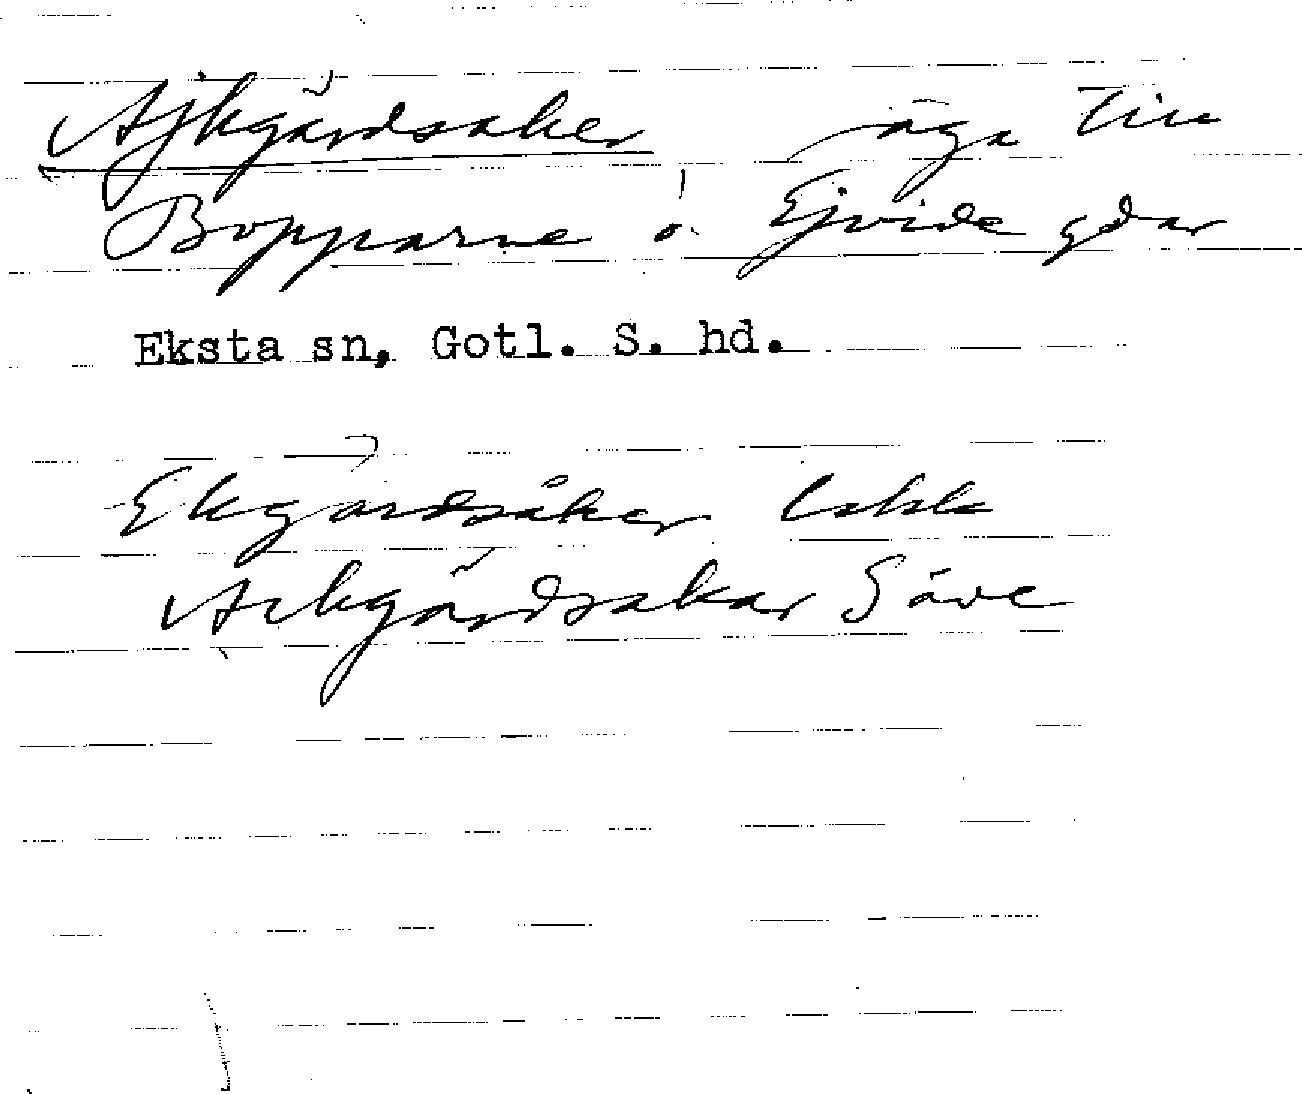 Ajkgårdsåker äga till
Bopparve o. Ejvide gdar
Eksta sn, Gotl. S. hd.
Ekgårdsåker Lskk
Aikgårdsakar Säve